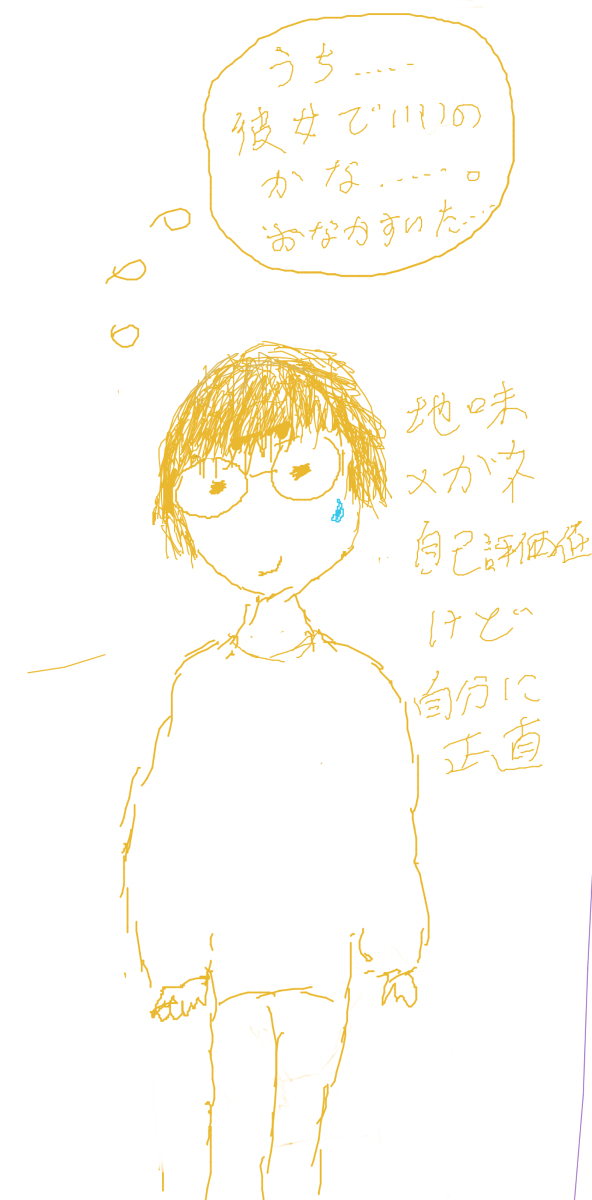 うち……
彼女でいいの
かな……。
おなかすいた…
地味
メガネ
自己評価低
けど
自分に
正直